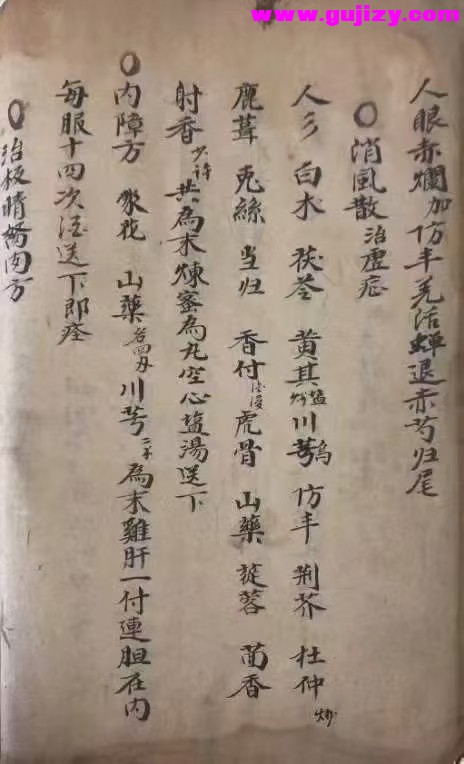 www.gujizy.com
人眼赤爛加仿丰羌活蟬退赤芍归尾
○消風散治虛症
人彡 白术 茯苓 黄其 川芎 仿丰 荆芥 杜仲炒
鹿茸 兎絲 当归 香付 虎骨 山藥 蓯蓉 茴香
射香少許 共為末煉蜜為丸空心盐湯送下
○内障方 山藥各四刄 川芎 為末雞肝一付連胆在内
每服十四次酒送下即痊
○治板睛努肉方